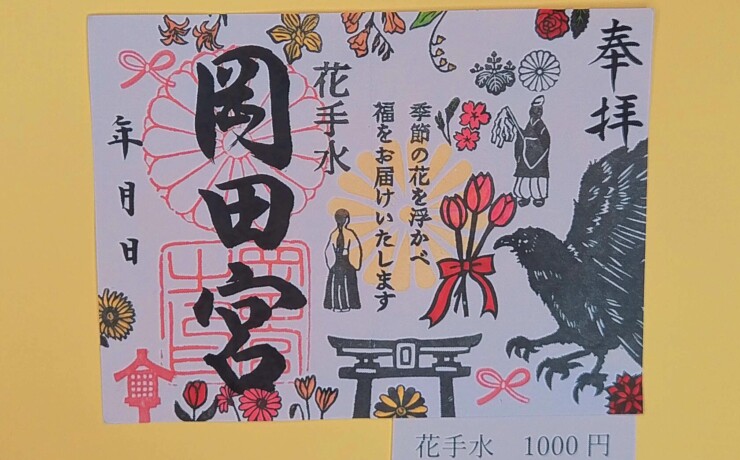 奉拝
季節の花を浮かべ
福をお届けいたします
花手水
岡田宮
年月日
花手水 1000円